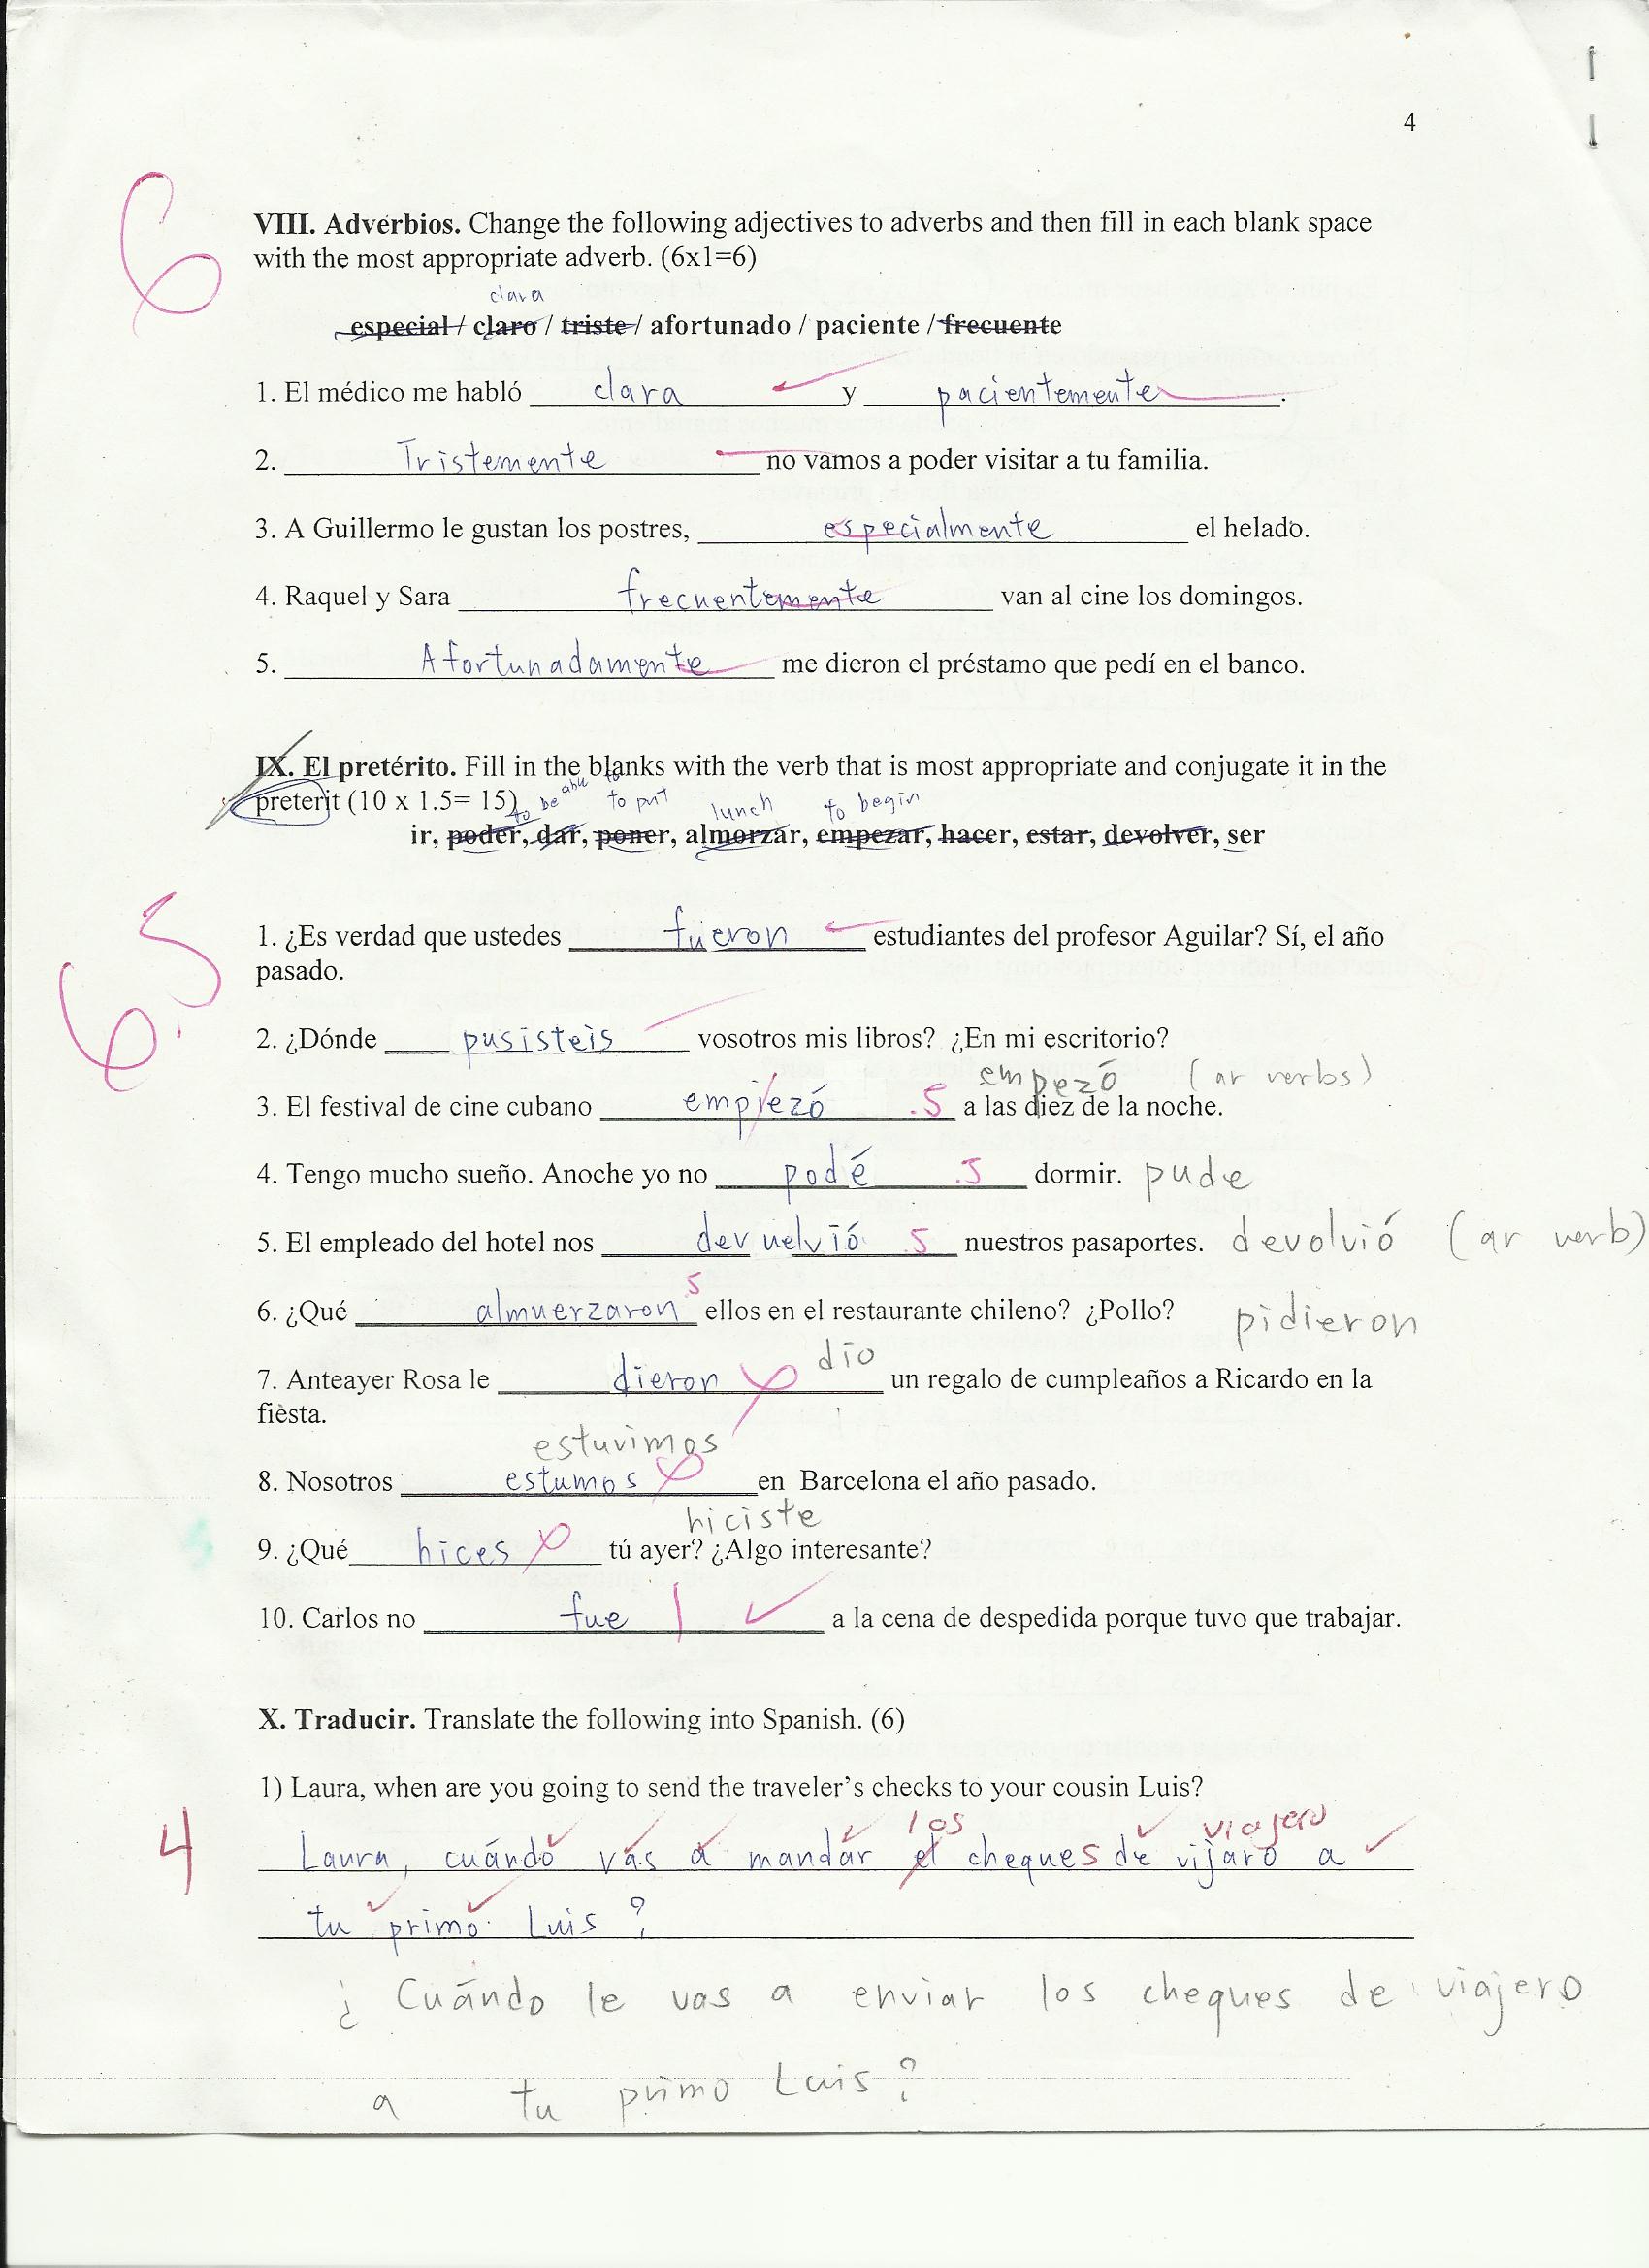 4
6
VIII. Adverbios. Change the following adjectives to adverbs and then fill in each blank space
with the most appropriate adverb. (6x1=6)
clara
especial / claro / triste / afortunado / paciente / frecuente
1. El médico me habló clara y pacientemente.
2. Tristemente no vamos a poder visitar a tu familia.
3. A Guillermo le gustan los postres, especialmente el helado.
4. Raquel y Sara frecuentemente van al cine los domingos.
5. Afortunadamente me dieron el préstamo que pedí en el banco.
IX. El pretérito. Fill in the blanks with the verb that is most appropriate and conjugate it in the
preterit (10 x 1.5= 15)
to be able to to put lunch to begin
ir, poder, dar, poner, almorzar, empezar, hacer, estar, devolver, ser
6.5
1. ¿Es verdad que ustedes fueron estudiantes del profesor Aguilar? Sí, el año
pasado.
2. ¿Dónde pusisteis vosotros mis libros? ¿En mi escritorio?
empezó (ar verbs)
3. El festival de cine cubano empiezó .5 a las diez de la noche.
4. Tengo mucho sueño. Anoche yo no podé .5 dormir. pude
5. El empleado del hotel nos devuelvió .5 nuestros pasaportes. devolvió (ar verb)
6. ¿Qué almuerzaron 5 ellos en el restaurante chileno? ¿Pollo? pidieron
dio
7. Anteayer Rosa le dieron un regalo de cumpleaños a Ricardo en la
fiesta.
estuvimos
8. Nosotros estumos en Barcelona el año pasado.
hiciste
9. ¿Qué hices tú ayer? ¿Algo interesante?
10. Carlos no fue a la cena de despedida porque tuvo que trabajar.
X. Traducir. Translate the following into Spanish. (6)
1) Laura, when are you going to send the traveler's checks to your cousin Luis?
los viajero
4
Laura, cuándo vas a mandar el cheques de vijaro a
tu primo Luis?
¿Cuándo le vas a enviar los cheques de viajero
a tu primo Luis?